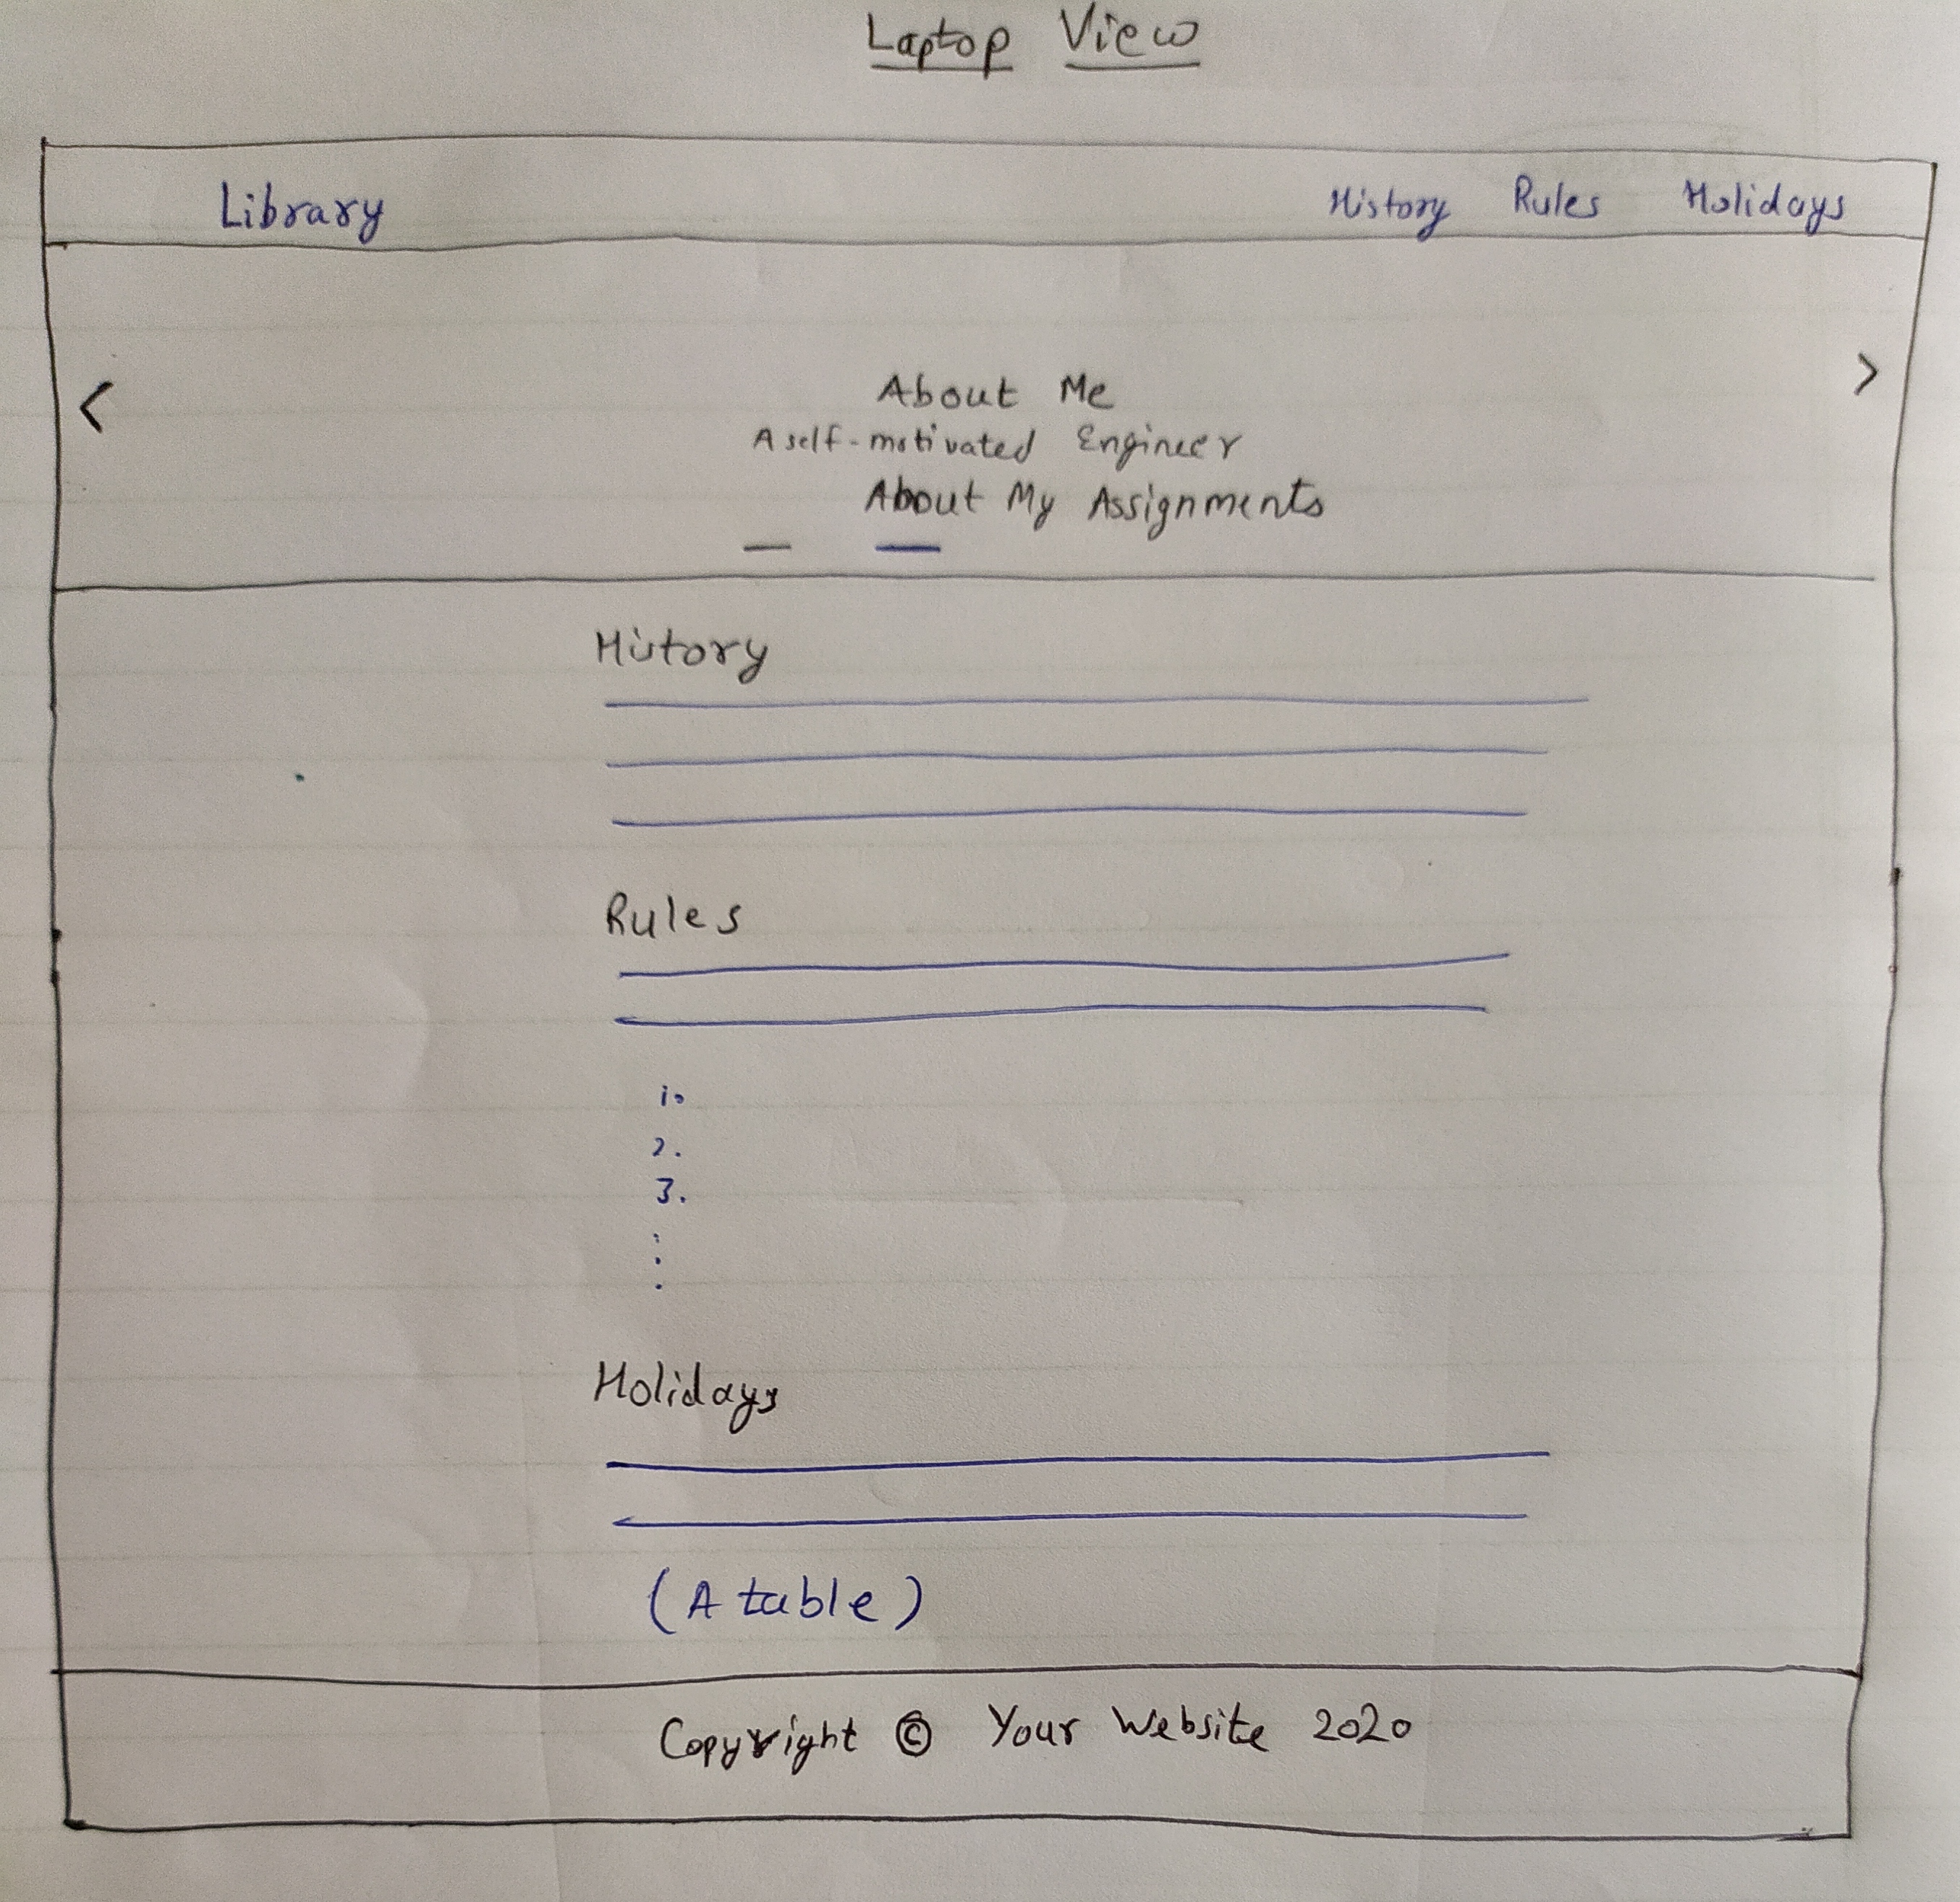 Laptop View
Library History Rules Holidays
< >
About Me
A self-motivated Engineer
About My Assignments
History
Rules
1.
2.
3.
Holidays
(A table)
Copyright © Your Website 2020